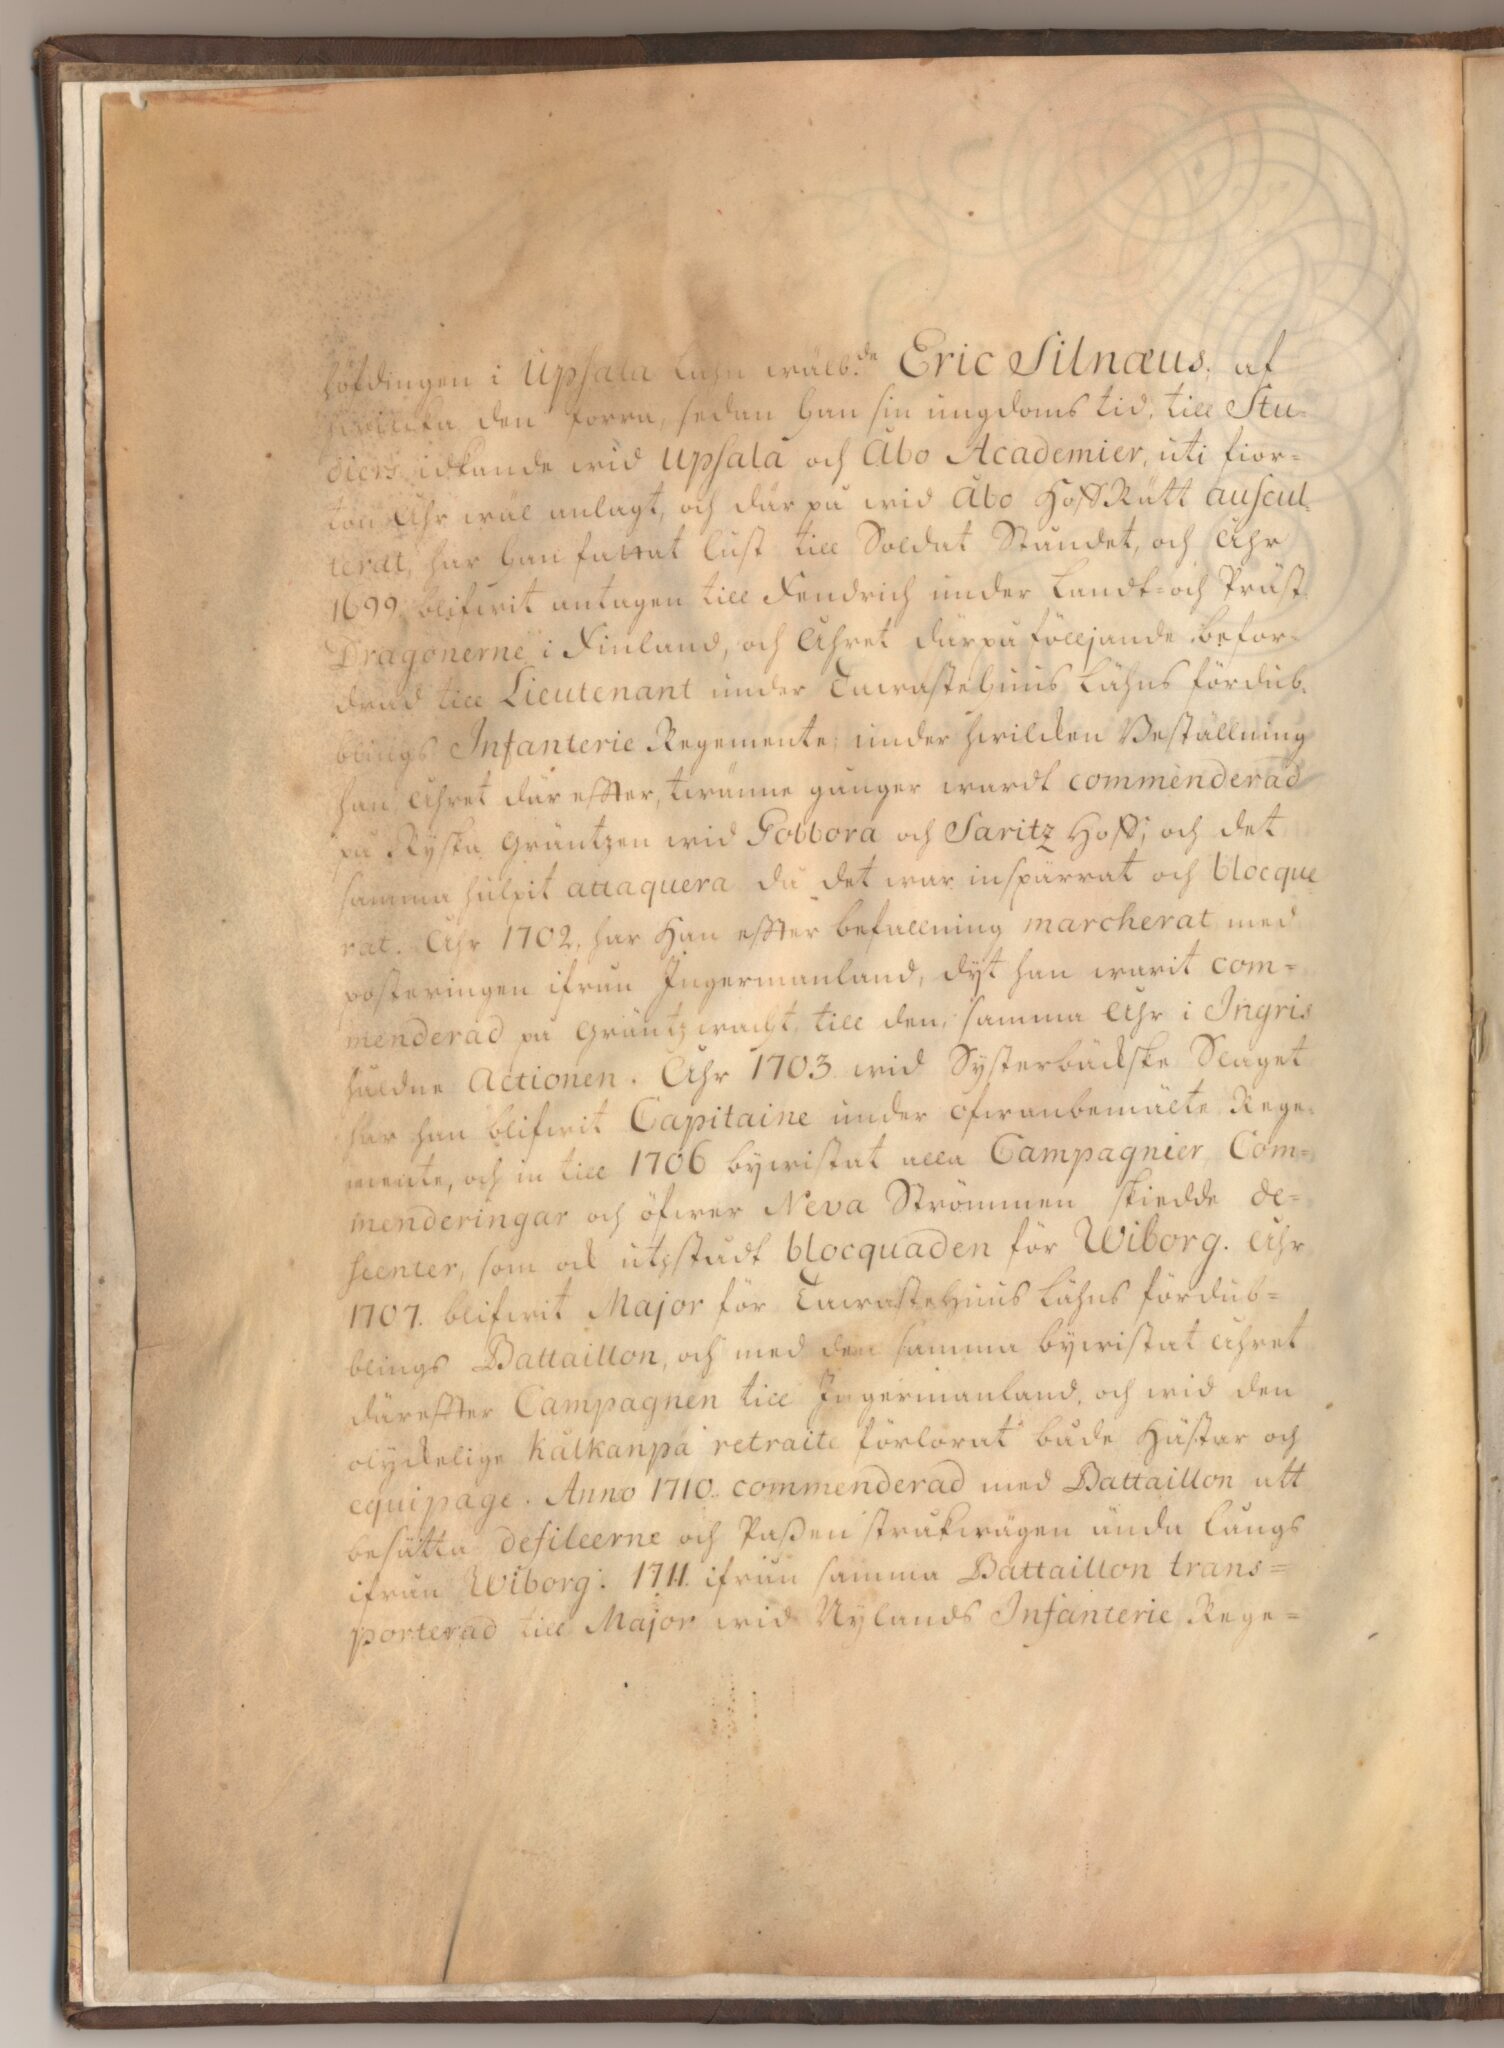 höfdingen i Upsala Lähn wälb.de Eric Silnæus, af
hwilcka den förra, sedan han sin ungdoms tid, till Stu-
diers idkande wid Upsala och Åbo Academier, uti fior-
ton Åhr wäl anlagt, och där på wid Åbo HoffRätt auscul-
terat, har han fattat lust till Soldat Ståndet, och Åhr
1699. blifwit antagen till Fendrich under Landt- och Präst
Dragonerne i Finland, och Åhret därpå följande befor-
drad till Lieutenant under Tawastehuus Lähns fördub-
blings Infanterie Regemente; under hwilcken Beställning
han Åhret där effter, twänne gånger wardt commenderad
på Ryska Gräntzen wid Gobbora och Saritz Hoff; och det
samma hulpit attaquera då det war inspärrat och blocque
rat. Åhr 1702. har Han effter befallning marcherat med
posteringen ifrån Ingermanland, dyt han warit com-
menderad på Gräntz wacht, till den, samma Åhr i Ingris
håldne Actionen. Åhr 1703 wid Systerbäckske Slaget
har han blifwit Capitaine under ofwanbemälte Rege-
mente, och in till 1706 bywistat alla Campagnier, Com-
menderingar och öfwer Neva Strömmen skiedde de-
scenter, som ock utstådt blocquaden för Wiborg. Åhr
1707. blifwit Major för Tawastehuus Lähns fördub-
blings Battaillon, och med den samma bywistat Åhret
däreffter Campagnen till Ingermanland, och wid den
olyckelige Kålkanpä retraite förlorat både Hästar och
equipage. Anno 1710. commenderad med Battaillon att
besätta defileerne och Paßen strakwägen ända långs
ifrån Wiborg. 1711. ifrån samma Battaillon trans-
porterad till Major wid Nylands Infanterie Rege-